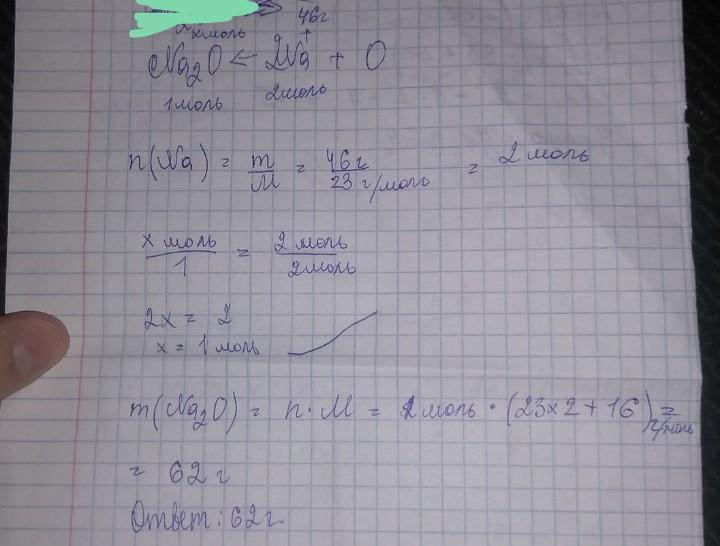 x моль 46г
Na₂O ← 2Na⁺ + O
1 моль 2 моль
n(Na) = m/M = 46г/23 г/моль = 2 моль
x моль/1 = 2 моль/2 моль
2x = 2
x = 1 моль
m(Na₂O) = n · M = 1 моль · (23x2 + 16) г/моль =
= 62 г
Ответ: 62 г